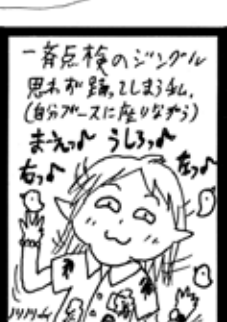 一斉点検のジングル
思わず踊ってしまう私。
(自分ブースに座りながら)
まーえっ♪ うしろっ♪
右っ♪ 左っ♪